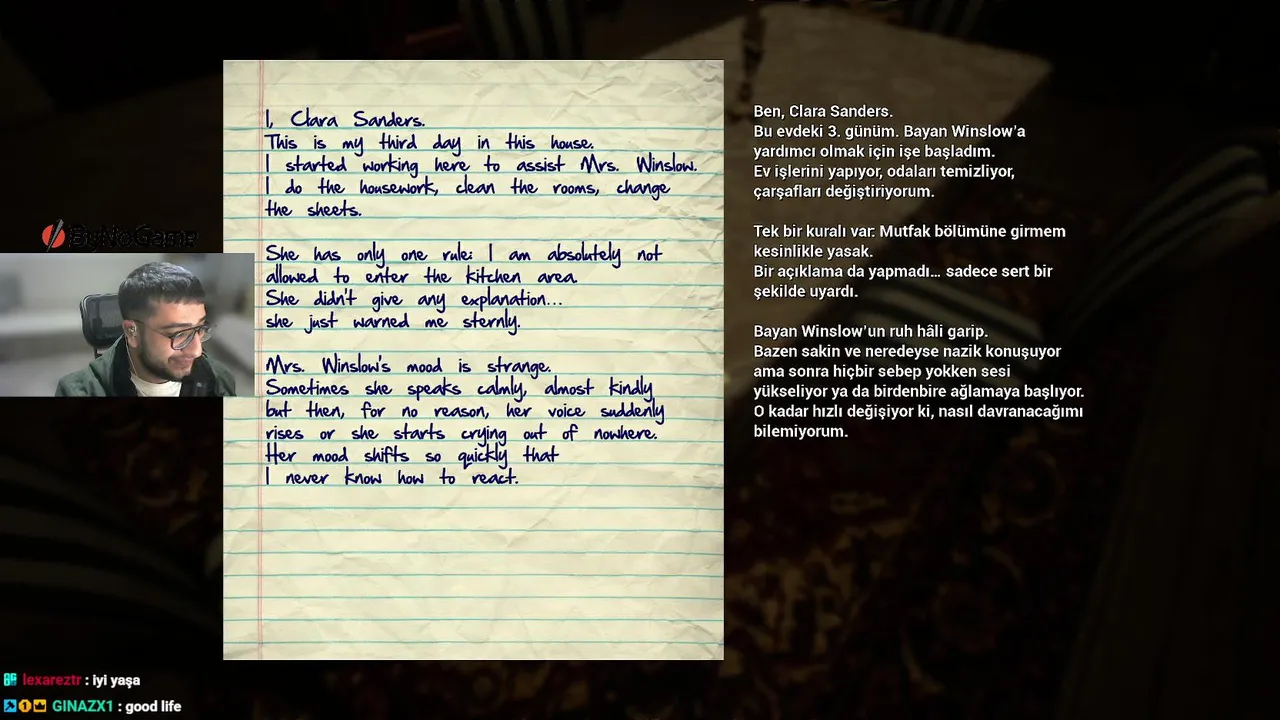 I, Clara Sanders.
This is my third day in this house.
I started working here to assist Mrs. Winslow.
I do the housework, clean the rooms, change
the sheets.
She has only one rule: I am absolutely not
allowed to enter the kitchen area.
She didn't give any explanation...
she just warned me sternly.
Mrs. Winslow's mood is strange.
Sometimes she speaks calmly, almost kindly
but then, for no reason, her voice suddenly
rises or she starts crying out of nowhere.
Her mood shifts so quickly that
I never know how to react.
Ben, Clara Sanders.
Bu evdeki 3. günüm. Bayan Winslow'a
yardımcı olmak için işe başladım.
Ev işlerini yapıyor, odaları temizliyor,
çarşafları değiştiriyorum.
Tek bir kuralı var: Mutfak bölümüne girmem
kesinlikle yasak.
Bir açıklama da yapmadı… sadece sert bir
şekilde uyardı.
Bayan Winslow'un ruh hâli garip.
Bazen sakin ve neredeyse nazik konuşuyor
ama sonra hiçbir sebep yokken sesi
yükseliyor ya da birdenbire ağlamaya başlıyor.
O kadar hızlı değişiyor ki, nasıl davranacağımı
bilemiyorum.
ByNoGame
lexareztr : iyi yaşa
1 GINAZX1 : good life